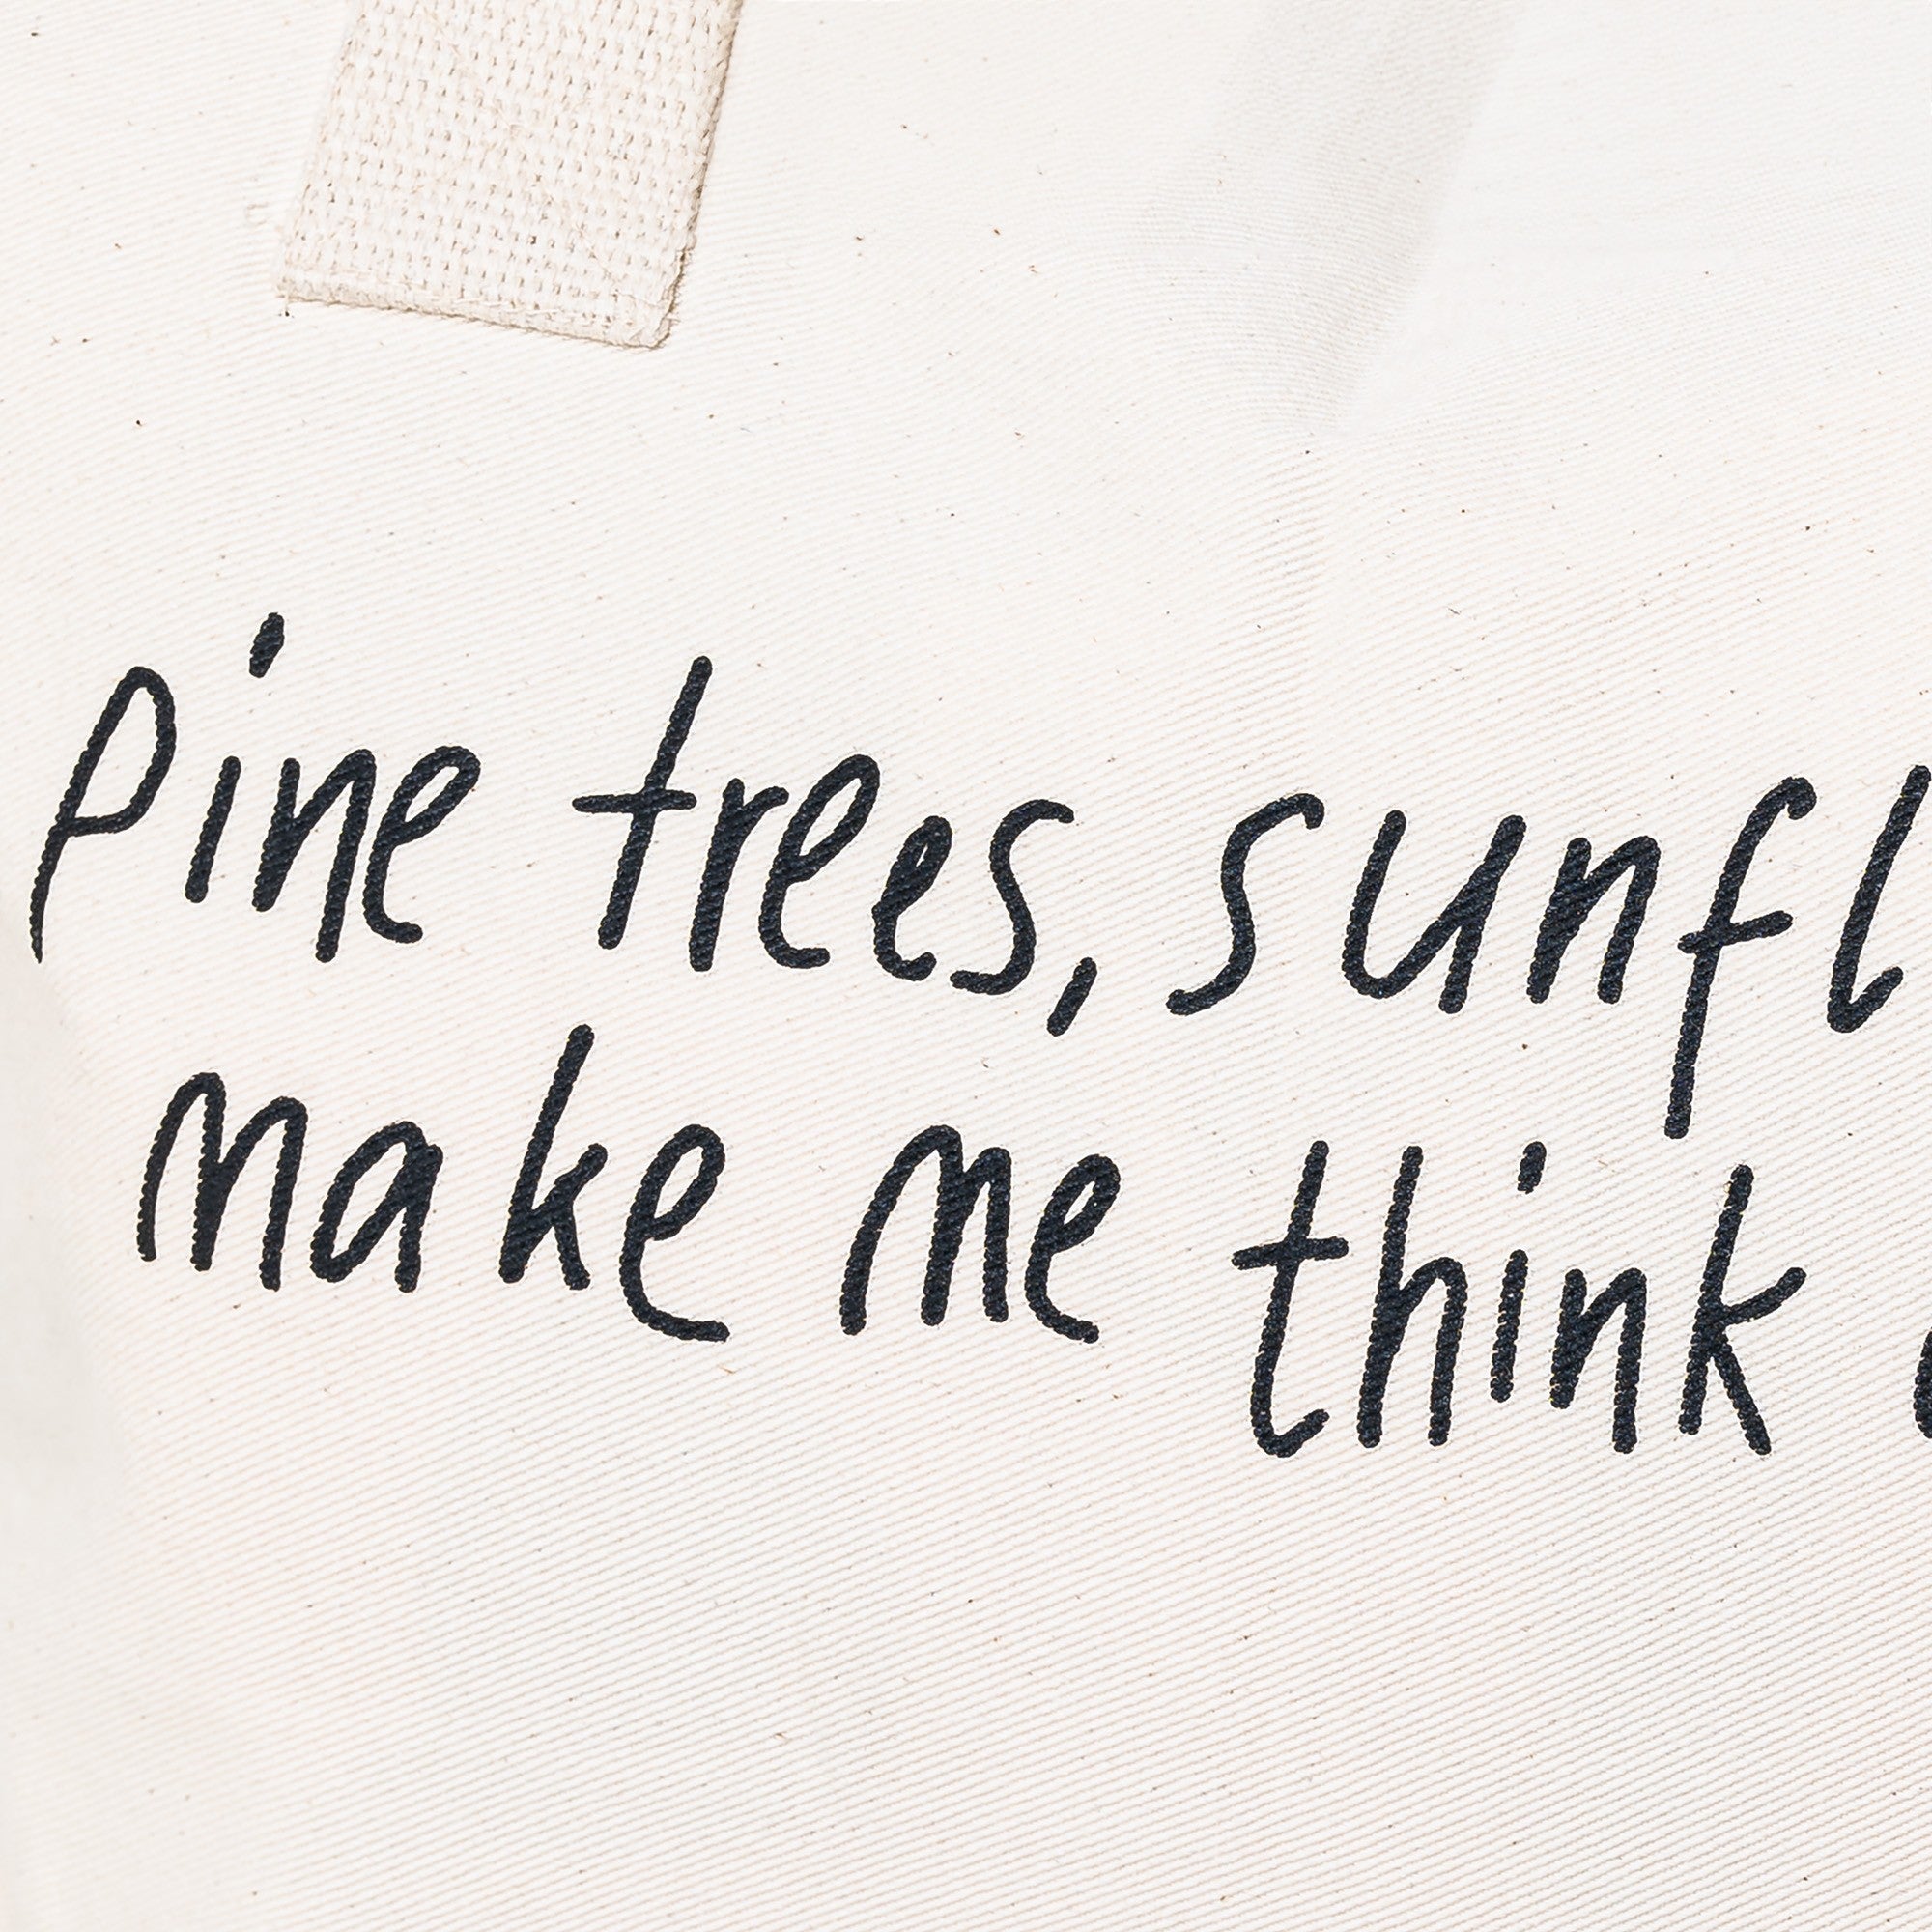 Pine trees, sunfl
make me think